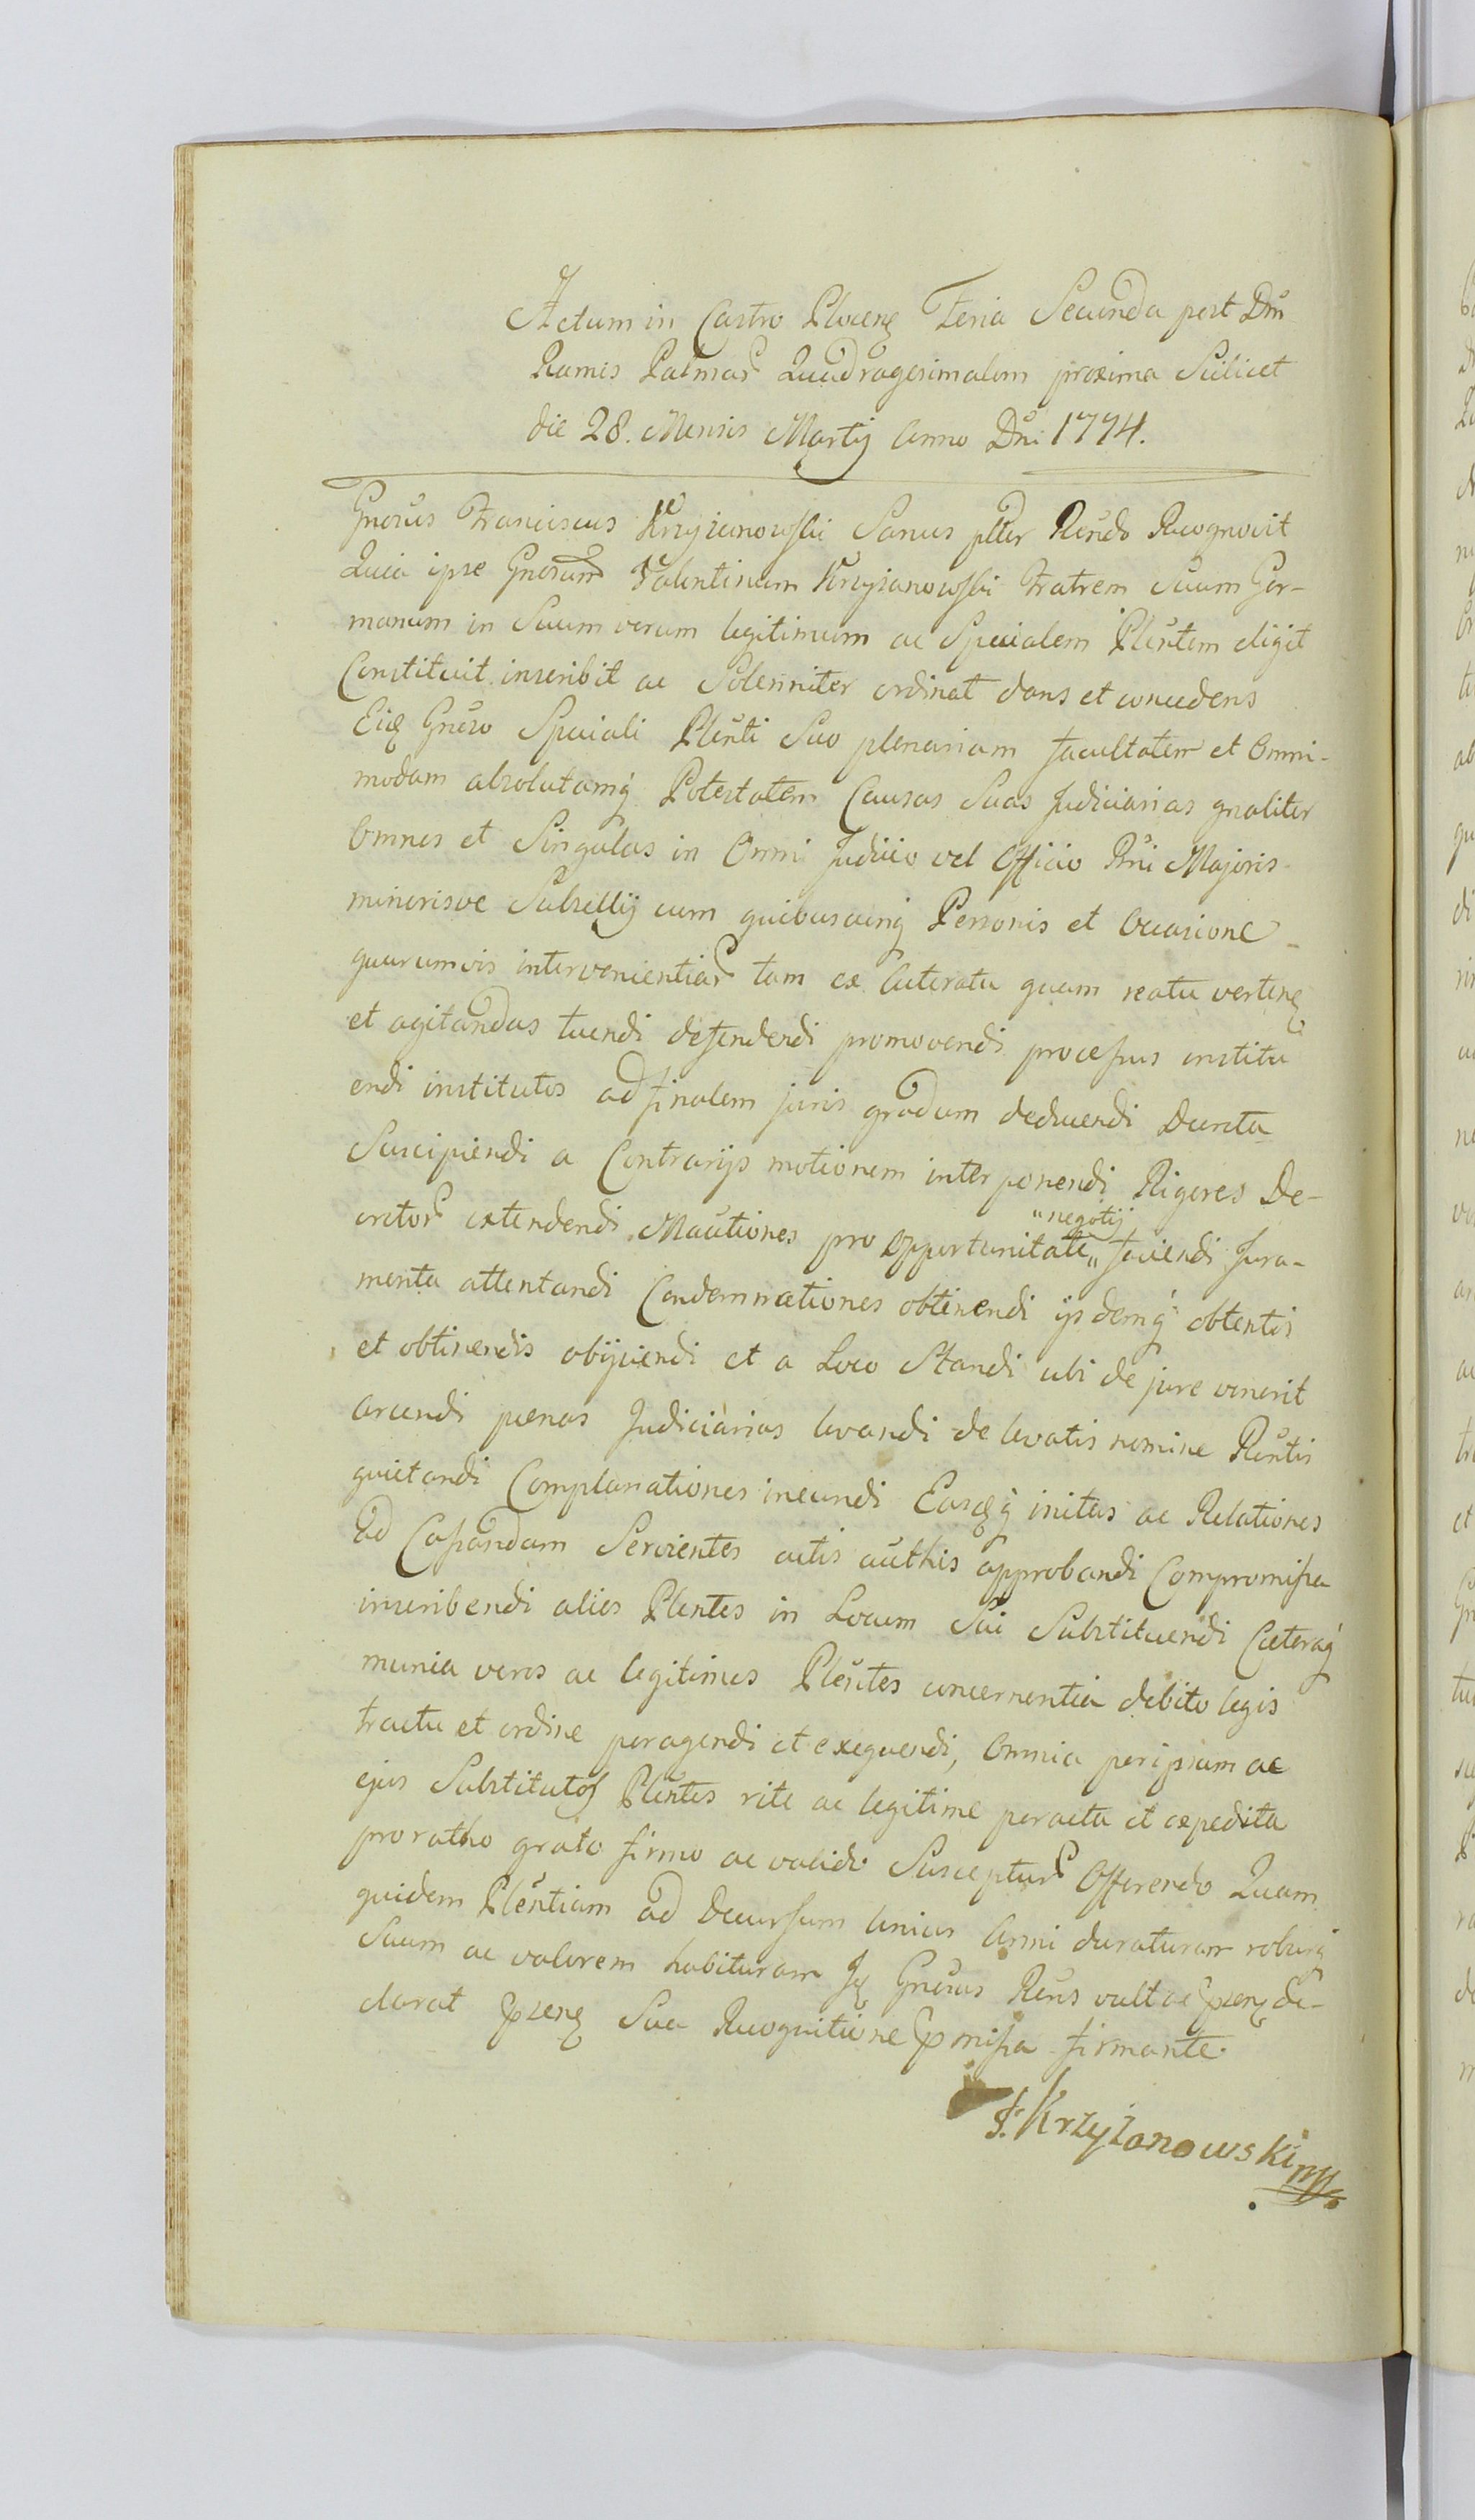 Actum in Castro Plocen Feria Secunda post Dnm
Ramis Palmar Quadragesimalem proxima Scilicet
die 28. Mensis Martij Anno Dni 1774.
Gnosus Franciscus Krzyżanowski Sanus plter Rendo Recognovit
Quia ipse Gnosum Valentinum Krzyżanowski Fratrem Suum Ger-
manum in Suum verum legitimum ac Specialem Plentem eligit
Constituit inscribit ac Solenniter ordinat dans et concedens
Eidē Gnoso Speciali Plenti Suo plenariam facultatem et Omni-
modam absolutamq Potestatem Causas Suas Judiciarias gnaliter
Omnes et Singulas in Omni Judicio vel Officio Rni Majoris
minorisve Subsellij cum quibuscunq Personis et Occasione
quarumvis intervenientiar tam ex Actoratu quam reatu verten
et agitandas tuendi defendendi promovendi processus institu
endi institutos ad finalem juris gradum deducendi Decreta
Suscipiendi a Contrarijs motionem interponendi Rigores De-
cretor extendendi Mautiones pro Opportunitate „negotij„ faciendi Jura-
menta attentandi Condemnationes obtinendi ijsdemq obtentis
et obtinendis obijciendi et a Loco Standi ubi de jure venerit
arcendi penas Judiciarias levandi de levatis nomine Rentis
quietandi Complanationes ineundi Easdēq initas ac Relationes
ad Cassandam Servientes actis authis approbandi Compromissa
inscribendi alios Plentes in Locum Sui Substituendi Cæteraq
munia veros ac legitimos Plentes concernentia debito legis
tractu et ordine peragendi et exequendi, Omnia per ipsum ac
ejus Substitutos Plentes rite ac legitime peracta et expedita
pro ratho grato firmo ac valido Susceptur Offerendo Quam
quidem Plentiam ad Decursum Unius Anni duraturam roburq
Suum ac valorem habituram Idē Gnosus Rens vult ac pren de-
clarat pren Sua Recognitione pmissa firmante.
F. Krzyżanowski mp